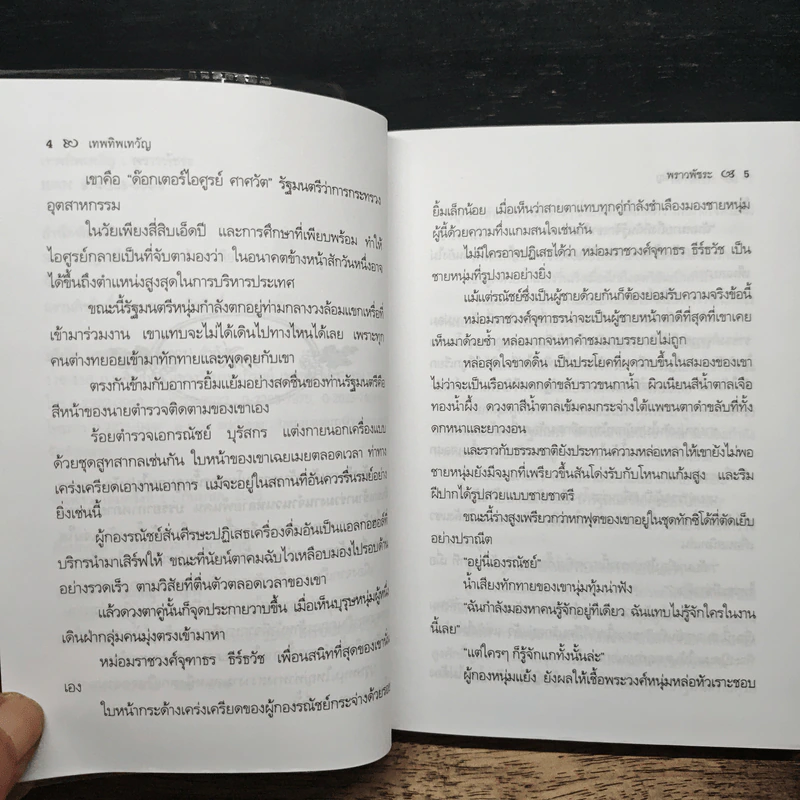 4 เทพทิพเทวัญ
เขาคือ "ด๊อกเตอร์ไอศูรย์ ศาศวัต" รัฐมนตรีว่าการกระทรวง
อุตสาหกรรม
ในวัยเพียงสี่สิบเอ็ดปี และการศึกษาที่เพียบพร้อม ทำให้
ไอศูรย์กลายเป็นที่จับตามองว่า ในอนาคตข้างหน้าสักวันหนึ่งอาจ
ได้ขึ้นถึงตำแหน่งสูงสุดในการบริหารประเทศ
ขณะนี้รัฐมนตรีหนุ่มกำลังตกอยู่ท่ามกลางวงล้อมแขกเหรื่อที่
เข้ามาร่วมงาน เขาแทบจะไม่ได้เดินไปทางไหนได้เลย เพราะทุก
คนต่างทยอยเข้ามาทักทายและพูดคุยกับเขา
ตรงกันข้ามกับอาการยิ้มแย้มอย่างสดชื่นของท่านรัฐมนตรีคือ
สีหน้าของนายตำรวจติดตามของเขาเอง
ร้อยตำรวจเอกรณัชย์ บุรัสกร แต่งกายนอกเครื่องแบบ
ด้วยชุดสูทสากลเช่นกัน ใบหน้าของเขาเฉยเมยตลอดเวลา ท่าทาง
เคร่งเครียดเอางานเอาการ แม้จะอยู่ในสถานที่อันควรรื่นรมย์อย่าง
ยิ่งเช่นนี้
ผู้กองรณัชย์สั่นศีรษะปฏิเสธเครื่องดื่มอันเป็นแอลกอฮอล์ที่
บริกรนำมาเสิร์ฟให้ ขณะที่นัยน์ตาคมฉับไวเหลือบมองไปรอบด้าน
อย่างรวดเร็ว ตามวิสัยที่ตื่นตัวตลอดเวลาของเขา
แล้วดวงตาคู่นั้นก็จุดประกายวาบขึ้น เมื่อเห็นบุรุษหนุ่มผู้หนึ่ง
เดินฝ่ากลุ่มคนมุ่งตรงเข้ามาหา
หม่อมราชวงศ์จุฑาธร ธีร์ธวัช เพื่อนสนิทที่สุดของเขานั่น
เอง
ใบหน้ากระด้างเคร่งเครียดของผู้กองรณัชย์กระจ่างด้วยรอย
พราวพัชระ 5
ยิ้มเล็กน้อย เมื่อเห็นว่าสายตาแทบทุกคู่กำลังชำเลืองมองชายหนุ่ม
ผู้นี้ด้วยความทึ่งแกมสนใจเช่นกัน
ไม่มีใครอาจปฏิเสธได้ว่า หม่อมราชวงศ์จุฑาธร ธีร์ธวัช เป็น
ชายหนุ่มที่รูปงามอย่างยิ่ง
แม้แต่รณัชย์ซึ่งเป็นผู้ชายด้วยกันก็ต้องยอมรับความจริงข้อนี้
หม่อมราชวงศ์จุฑาธรน่าจะเป็นผู้ชายหน้าตาดีที่สุดที่เขาเคย
เห็นมาด้วยซ้ำ หล่อมากจนหาคำชมมาบรรยายไม่ถูก
หล่อสุดใจขาดดิ้น เป็นประโยคที่ผุดวาบขึ้นในสมองของเขา
ไม่ว่าจะเป็นเรือนผมดกดำขลับราวขนกาน้ำ ผิวเนียนสีน้ำตาลเจือ
ทองน้ำผึ้ง ดวงตาสีน้ำตาลเข้มคมกระจ่างใต้แพขนตาดำขลับที่ทั้ง
ดกหนาและยาวงอน
และราวกับธรรมชาติยังประทานความหล่อเหลาให้เขายังไม่พอ
ชายหนุ่มยังมีจมูกที่เพรียวขึ้นสันโด่งรับกับโหนกแก้มสูง และริม
ฝีปากได้รูปสวยแบบชายชาตรี
ขณะนี้ร่างสูงเพรียวกว่าหกฟุตของเขาอยู่ในชุดทักซิโด้ที่ตัดเย็บ
อย่างปราณีต
"อยู่นี่เองรณัชย์"
น้ำเสียงทักทายของเขานุ่มทุ้มน่าฟัง
"ฉันกำลังมองหาคนรู้จักอยู่ทีเดียว ฉันแทบไม่รู้จักใครในงาน
นี้เลย"
"แต่ใครๆ ก็รู้จักแกทั้งนั้นล่ะ"
ผู้กองหนุ่มแย้ง ยังผลให้เชื้อพระวงศ์หนุ่มหล่อหัวเราะชอบ